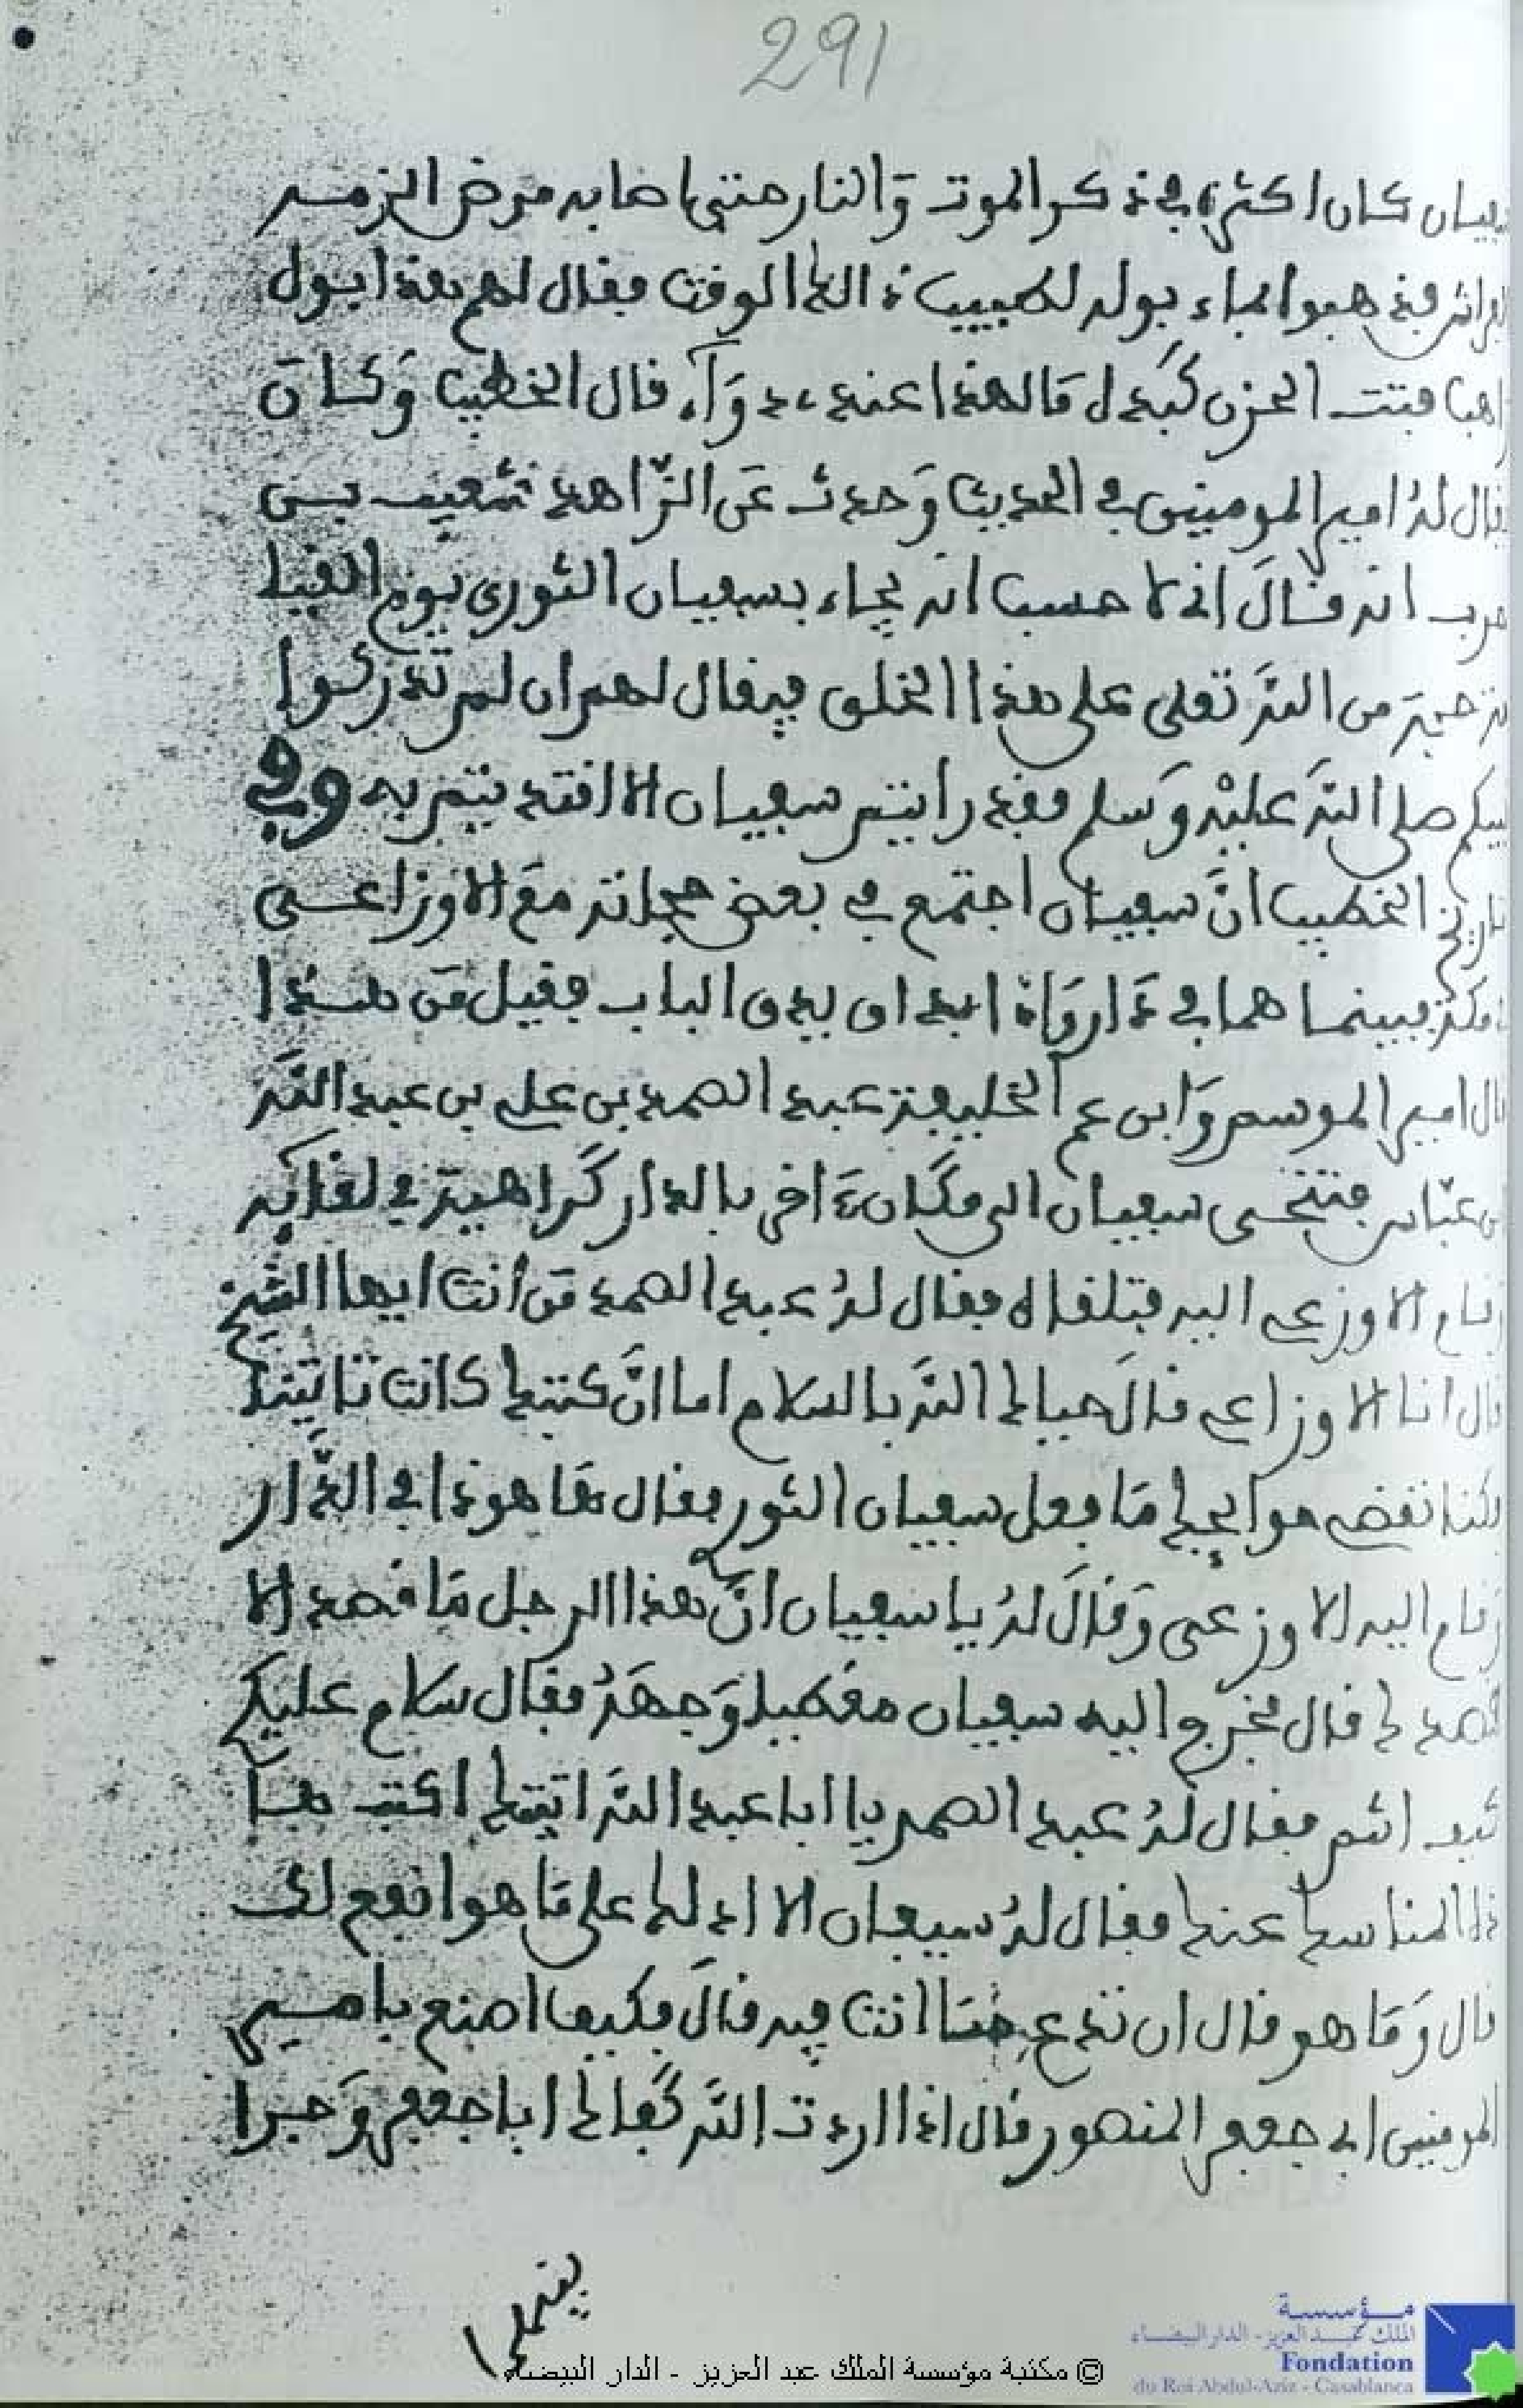 291
سفيان كان اكثر في ذكر الموت والنار حتى اصابه مرض الزمه
الفراش فذهبوا لماء بوله لطبيب ذالك الوقت فقال لهم هذا بول
فتت الحزن كبده ما لهذا عنده دواء قال الخطيب وكان
يقال له امير المومنين في الحديث وحدث عن الزاهد شعيب بن
حرب انه قال اني لاحسب انه يجاء بسفيان الثوري يوم القيا
حجة من الله تعلى على هذا الخلق فيقال لهم ان لم تدركوا
نبيكم صلى الله عليه وسلم فقد رايتم سفيان الا اقتديتم به وفي
تاريخ الخطيب ان سفيان اجتمع في بعض حجاته مع الاوزاعي
بمكة فبينما هما في دار واذا احد ان يدق الباب فقيل من هذا
قال امير الموسم وابن عم الخليفة عبد الصمد بن علي بن عبد الله
بن عباس فتنحى سفيان الى مكان ءاخر بالدار كراهية في لقايه
وقام الاوزعي اليه فتلقاه فقال له عبد الصمد من انت ايها الشيخ
قال انا الاوزاعي قال حياك الله بالسلام اما ان كتبك كانت تاتينا
فكنا نقضي حوايجك ما فعل سفيان الثوري فقال ها هو ذا في الدار
وقام اليه الاوزعي وقال له يا سفيان ان هذا الرجل ما قصد الا
قصدك قال فخرج اليه سفيان مقطبا وجهه فقال سلام عليكم
كيف انتم فقال له عبد الصمد يا ابا عبد الله اتيتك اكتب هذا
المناسك عنك فقال له سفيان الا ادلك على ما هو انفع لك
قال وما هو قال ان تدع ما انت فيه قال فكيف اصنع بامير
المومنين ابي جعفر المنصور قال اذا اردت الله كفاك ابا جعفر وجرا
© مكتبة مؤسسة الملك عبد العزيز - الدار البيضاء
مؤسسة
الملك عبد العزيز - الدار البيضاء
Fondation
du Roi Abdul-Aziz - Casablanca